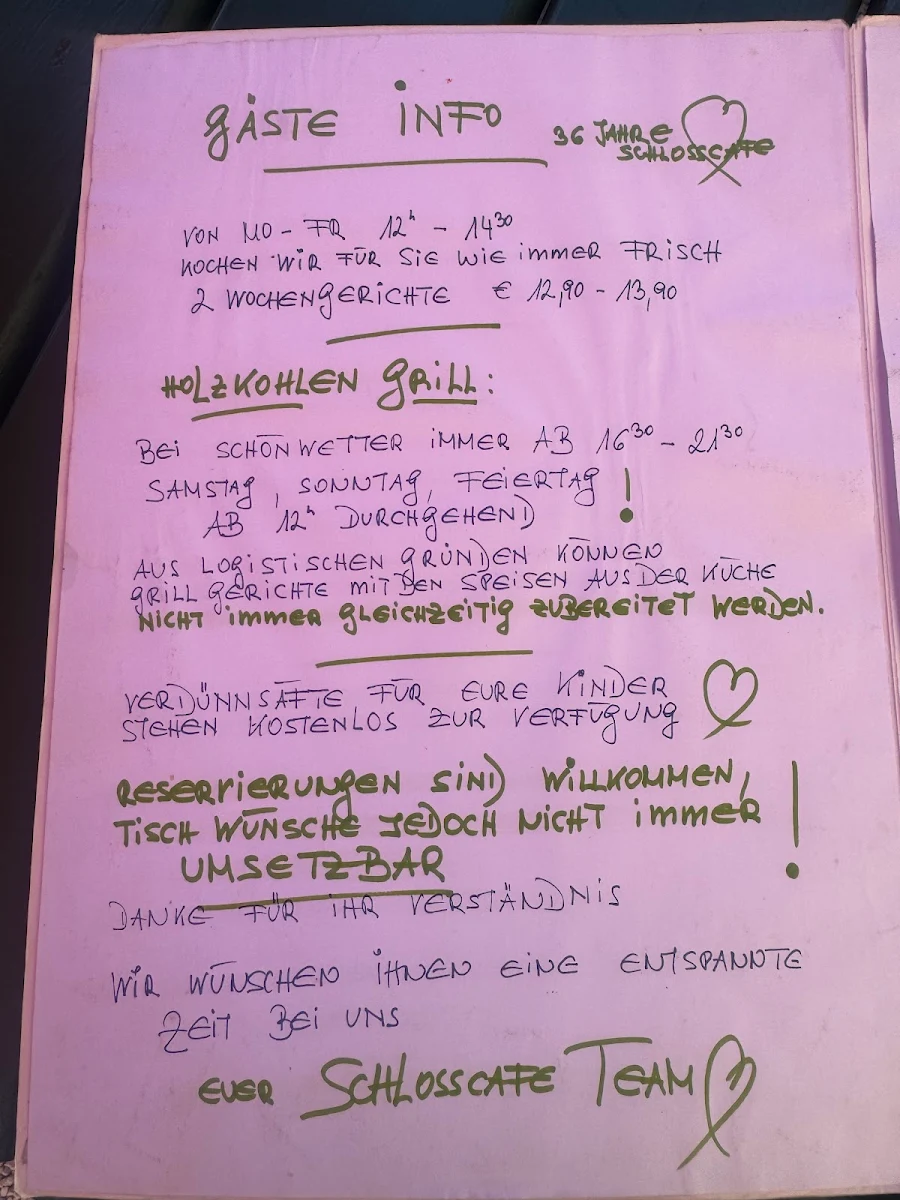 GÄSTE INFO
36 JAHRE
SCHLOSSCAFE
VON MO - FR 12h - 14 30
KOCHEN WIR FÜR SIE WIE IMMER FRISCH
2 WOCHENGERICHTE € 12,90 - 13,90
HOLZKOHLEN GRILL:
BEI SCHÖNWETTER IMMER AB 16 30 - 21 30
SAMSTAG, SONNTAG, FEIERTAG !
AB 12h DURCHGEHEND
AUS LOGISTISCHEN GRÜNDEN KÖNNEN
GRILL GERICHTE MIT DEN SPEISEN AUS DER KÜCHE
NICHT IMMER GLEICHZEITIG ZUBEREITET WERDEN.
VERDÜNNSÄFTE FÜR EURE KINDER
STEHEN KOSTENLOS ZUR VERFÜGUNG
RESERVIERUNGEN SIND WILLKOMMEN,
TISCH WÜNSCHE JEDOCH NICHT IMMER !
UMSETZBAR
DANKE FÜR IHR VERSTÄNDNIS
WIR WÜNSCHEN IHNEN EINE ENTSPANNTE
ZEIT BEI UNS
EUER SCHLOSSCAFE TEAM